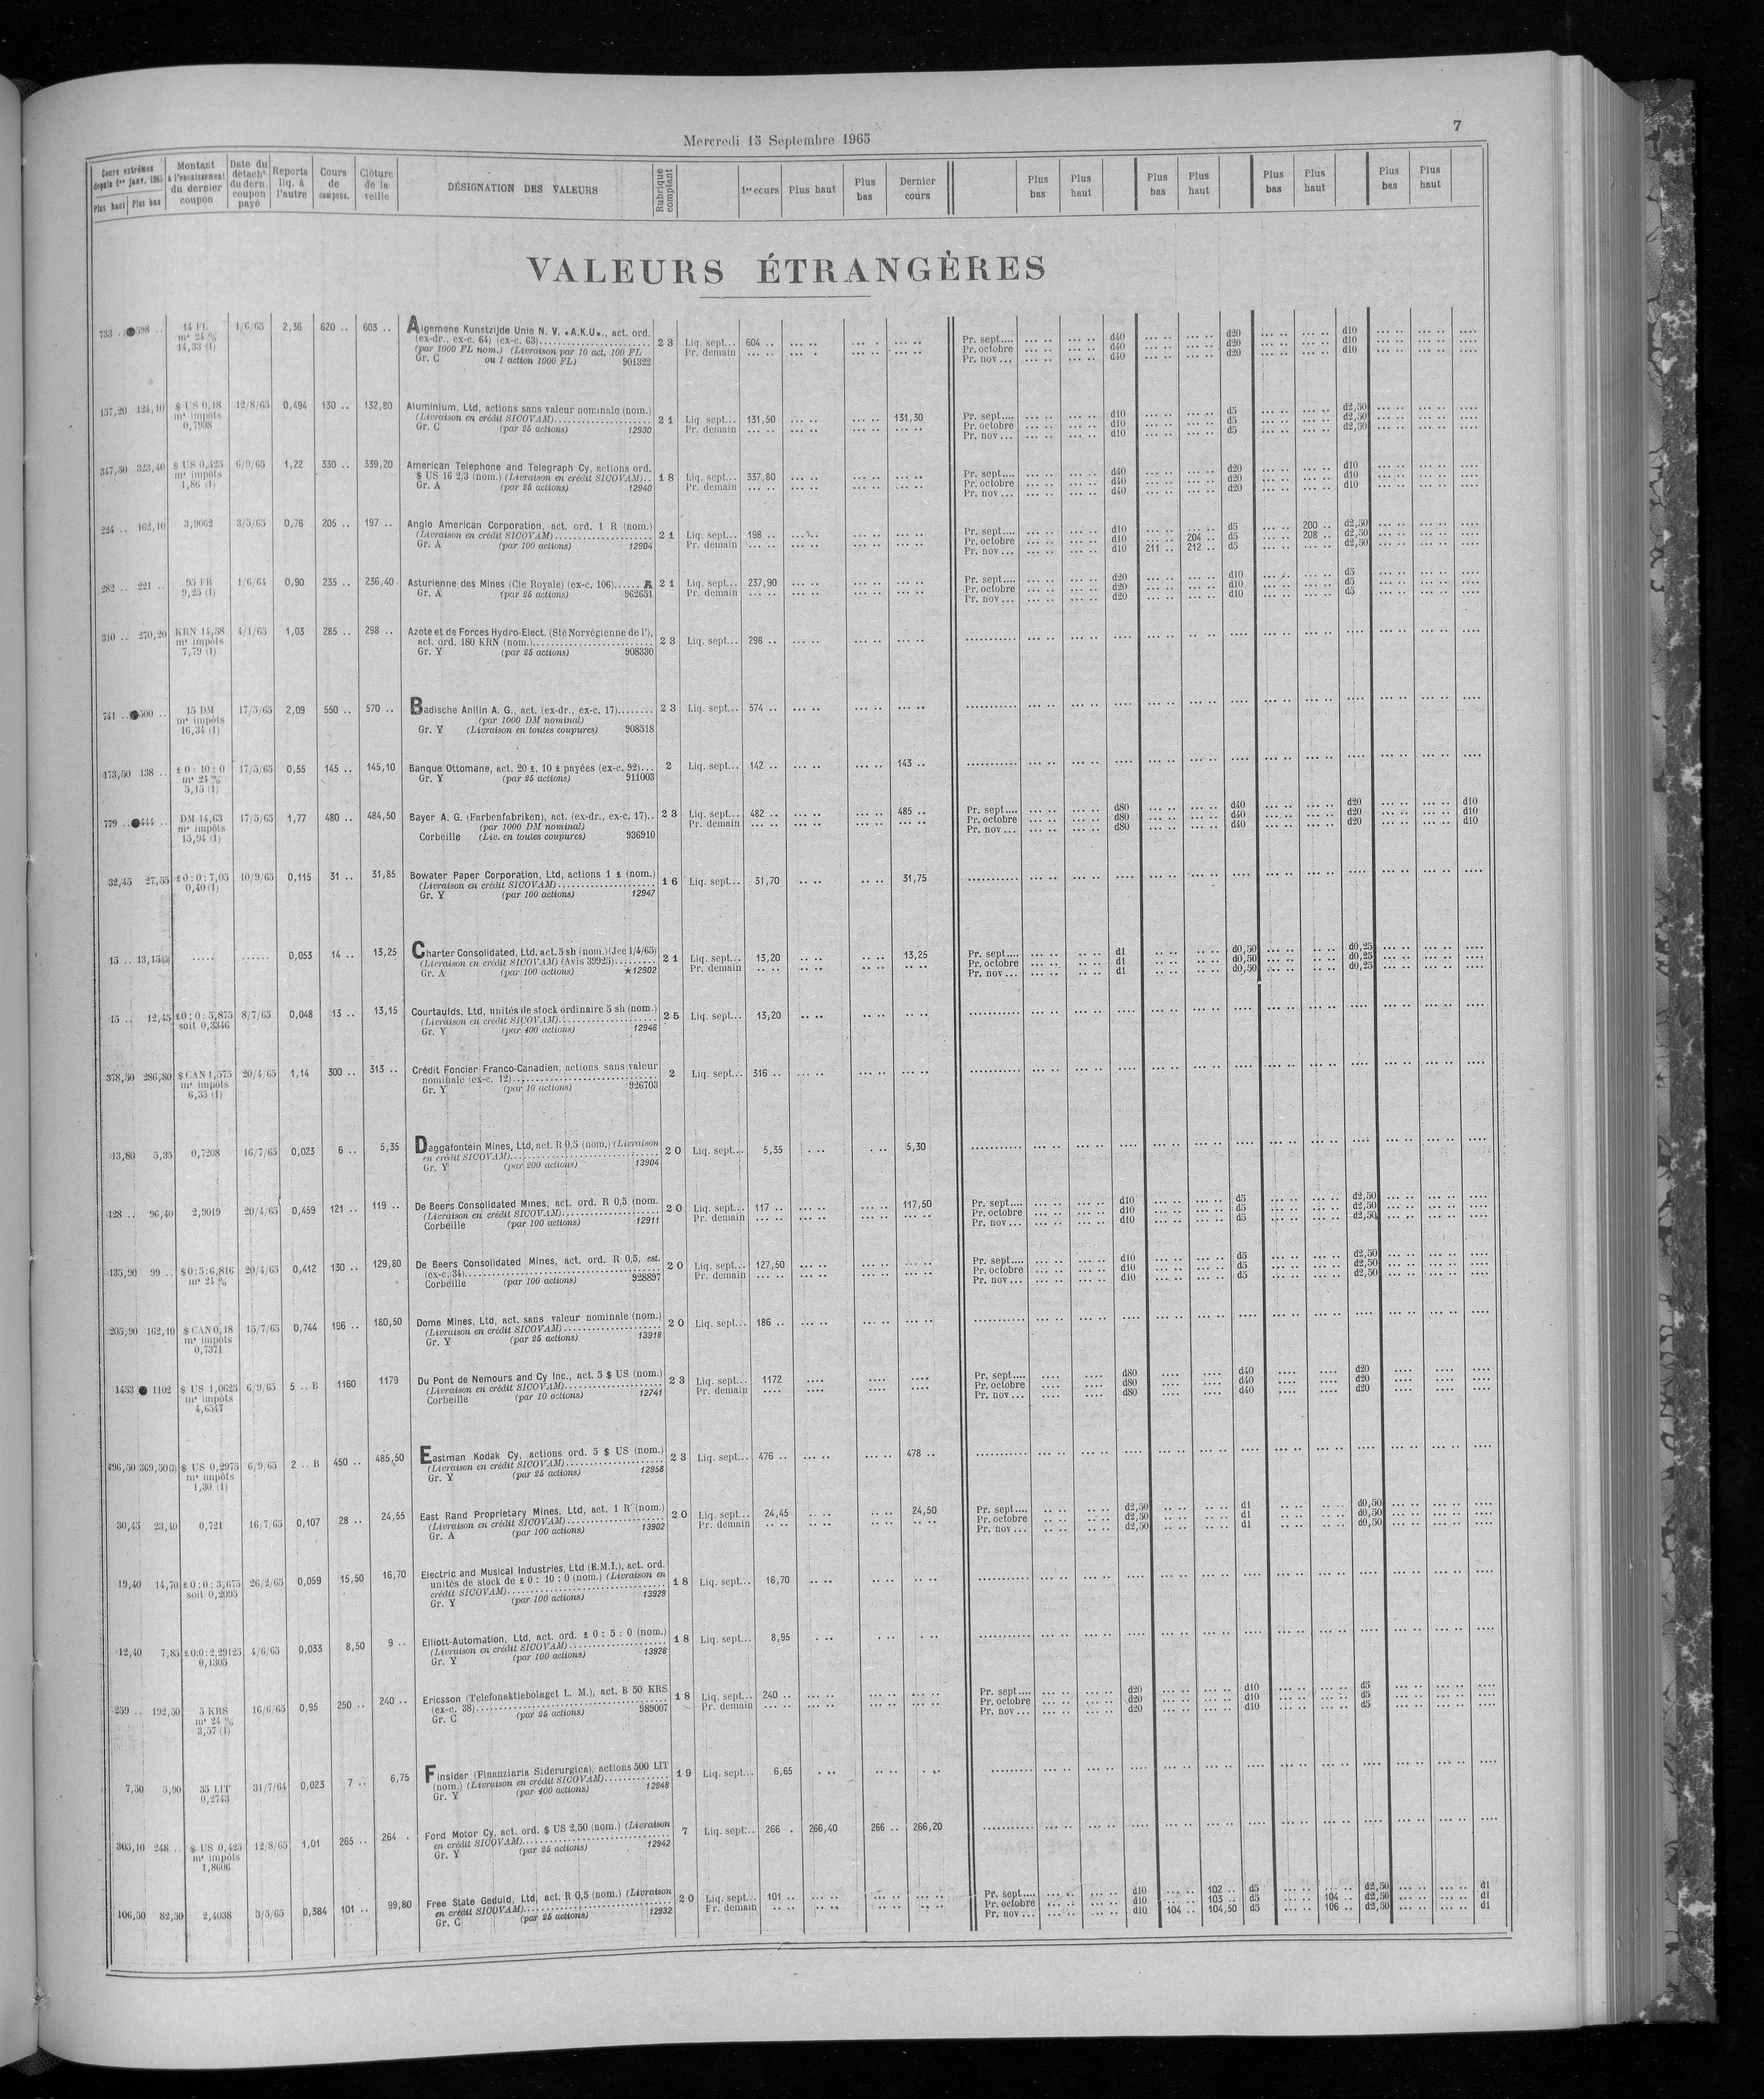 Mercredi 15 Septembre 1965
7
Cours extrêmes depuis 1er janv. 1965 Plus haut Plus bas | Montant à l'encaissement du dernier coupon | Date du détacht du dern. coupon payé | Reports liq. à l'autre | Cours de compens. | Clôture de la veille | DÉSIGNATION DES VALEURS | Rubrique comptant | 1er cours | Plus haut | Plus bas | Dernier cours | Plus bas | Plus haut | Plus bas | Plus haut | Plus bas | Plus haut | Plus bas | Plus haut
VALEURS ÉTRANGÈRES
733 .. 598 .. 14 FL 1/6/65 2,36 620 .. 603 .. Algemene Kunstzijde Unie N. V. «A.K.U», act. ord.
me 24 % (ex-dr., ex-c. 64) (ex-c. 63) 23 Liq. sept... 604 .. Pr. sept.... d40 d20 d10
14,33 (1) (par 1000 FL nom.) (Livraison par 10 act. 100 FL Pr. demain Pr. octobre d40 d20 d10
Gr. C ou 1 action 1000 FL) 901322 Pr. nov... d40 d20 d10
157,20 124,10 $ US 0,18 12/8/65 0,494 130 .. 132,80 Aluminium, Ltd, actions sans valeur nominale (nom.)
me impôts (Livraison en crédit SICOVAM) 21 Liq sept... 131,50 131,30 Pr. sept.... d10 d5 d2,50
0,7938 Gr. C (par 25 actions) 12930 Pr. demain Pr. octobre d10 d5 d2,50
Pr. nov... d10 d5 d2,50
347,50 323,40 $ US 0,425 6/9/65 1,22 330 .. 339,20 American Telephone and Telegraph Cy, actions ord.
me impôts $ US 16 2/3 (nom.) (Livraison en crédit SICOVAM).. 18 Liq. sept... 337,80 Pr. sept.... d40 d20 d10
1,86 (1) Gr. A (par 25 actions) 12940 Pr. demain Pr. octobre d40 d20 d10
Pr. nov... d40 d20 d10
224 .. 162,10 3,9062 3/5/65 0,76 205 .. 197 .. Anglo American Corporation, act. ord. 1 R (nom.)
(Livraison en crédit SICOVAM) 21 Liq. sept... 198 .. Pr. sept.... d10 d5 200 .. d2,50
Gr. A (par 100 actions) 12904 Pr. demain Pr. octobre d10 204 .. d5 208 .. d2,50
Pr. nov... d10 211 .. 212 .. d5 d2,50
282 .. 221 .. 95 FB 1/6/64 0,90 235 .. 236,40 Asturienne des Mines (Cie Royale) (ex-c. 106)...... A 21 Liq. sept... 237,90 Pr. sept.... d20 d10 d5
9,25 (1) Gr. A (par 25 actions) 962651 Pr. demain Pr. octobre d20 d10 d5
Pr. nov... d20 d10 d5
310 .. 270,20 KRN 14,58 4/1/65 1,03 285 .. 298 .. Azote et de Forces Hydro-Elect. (Sté Norvégienne de l'),
me impôts act. ord. 180 KRN (nom.) 23 Liq. sept... 298 ..
7,79 (1) Gr. Y (par 25 actions) 908330
741 .. 500 .. 15 DM 17/5/65 2,09 550 .. 570 .. Badische Anilin A. G., act. (ex-dr., ex-c. 17)........ 23 Liq. sept... 574 ..
me impôts (par 1000 DM nominal)
16,34 (1) Gr. Y (Livraison en toutes coupures) 908518
173,50 138 .. £ 0 : 10 : 0 17/5/65 0,55 145 .. 145,10 Banque Ottomane, act. 20 £, 10 £ payées (ex-c. 92)... 2 Liq. sept... 142 .. 143 ..
me 24 % Gr. Y (par 25 actions) 911003
5,15 (1)
779 .. 444 .. DM 14,63 17/5/65 1,77 480 .. 484,50 Bayer A. G. (Farbenfabriken), act. (ex-dr., ex-c. 17).. 23 Liq. sept... 482 .. 485 .. Pr. sept.... d80 d40 d20 d10
me impôts (par 1000 DM nominal) Pr. demain Pr. octobre d80 d40 d20 d10
15,94 (1) Corbeille (Liv. en toutes coupures) 936910 Pr. nov... d80 d40 d20 d10
32,45 27,55 £0:0:7,05 10/9/65 0,115 31 .. 31,85 Bowater Paper Corporation, Ltd, actions 1 £ (nom.)
0,40 (1) (Livraison en crédit SICOVAM) 16 Liq. sept... 31,70 31,75
Gr. Y (par 100 actions) 12947
15 .. 13,15(5) ..... ...... 0,053 14 .. 13,25 Charter Consolidated, Ltd, act. 5 sh (nom.) (Jce 1/4/65)
(Livraison en crédit SICOVAM) (Avis 39925) 21 Liq. sept... 13,20 13,25 Pr. sept.... d1 d0,50 d0,25
Gr. A (par 100 actions) ★12902 Pr. demain Pr. octobre d1 d0,50 d0,25
Pr. nov... d1 d0,50 d0,25
15 .. 12,45 £0:0:5,875 8/7/65 0,048 13 .. 13,15 Courtaulds, Ltd, unités de stock ordinaire 5 sh (nom.)
soit 0,3346 (Livraison en crédit SICOVAM) 25 Liq. sept... 13,20
Gr. Y (par 400 actions) 12946
378,50 286,80 $ CAN 1,575 20/4/65 1,14 300 .. 313 .. Crédit Foncier Franco-Canadien, actions sans valeur
me impôts nominale (ex-c. 12) 2 Liq. sept... 316 ..
6,35 (1) Gr. Y (par 10 actions) 926703
13,80 5,35 0,7208 16/7/65 0,023 6 .. 5,35 Daggafontein Mines, Ltd, act. R 0,5 (nom.) (Livraison
en crédit SICOVAM) 20 Liq. sept... 5,35 5,30
Gr. Y (par 200 actions) 13904
128 .. 96,40 2,9019 20/4/65 0,459 121 .. 119 .. De Beers Consolidated Mines, act. ord. R 0,5 (nom.
(Livraison en crédit SICOVAM) 20 Liq. sept... 117 .. 117,50 Pr. sept.... d10 d5 d2,50
Corbeille (par 100 actions) 12911 Pr. demain Pr. octobre d10 d5 d2,50
Pr. nov... d10 d5 d2,50
135,90 99 .. $0:5:6,816 20/4/65 0,412 130 .. 129,80 De Beers Consolidated Mines, act. ord. R 0,5, est.
me 24 % (ex-c. 34) 20 Liq. sept... 127,50 Pr. sept.... d10 d5 d2,50
Corbeille (par 100 actions) 928897 Pr. demain Pr. octobre d10 d5 d2,50
Pr. nov... d10 d5 d2,50
205,90 162,10 $ CAN 0,18 15/7/65 0,744 196 .. 180,50 Dome Mines, Ltd, act. sans valeur nominale (nom.)
me impôts (Livraison en crédit SICOVAM) 20 Liq. sept... 186 ..
0,7371 Gr. Y (par 25 actions) 13918
1453 1102 $ US 1,0625 6/9/65 5 .. B 1160 1179 Du Pont de Nemours and Cy Inc., act. 5 $ US (nom.)
me impôts (Livraison en crédit SICOVAM) 23 Liq. sept... 1172 Pr. sept.... d80 d40 d20
4,6547 Corbeille (par 10 actions) 12741 Pr. demain Pr. octobre d80 d40 d20
Pr. nov... d80 d40 d20
496,50 369,50(3) $ US 0,2975 6/9/65 2 .. B 450 .. 485,50 Eastman Kodak Cy, actions ord. 5 $ US (nom.)
me impôts (Livraison en crédit SICOVAM) 23 Liq. sept... 476 .. 478 ..
1,30 (1) Gr. Y (par 25 actions) 12958
30,45 23,40 0,721 16/7/65 0,107 28 .. 24,55 East Rand Proprietary Mines, Ltd, act. 1 R (nom.)
(Livraison en crédit SICOVAM) 20 Liq. sept... 24,45 24,50 Pr. sept.... d2,50 d1 d0,50
Gr. A (par 100 actions) 13902 Pr. demain Pr. octobre d2,50 d1 d0,50
Pr. nov... d2,50 d1 d0,50
19,40 14,70 £0:0:3,675 26/2/65 0,059 15,50 16,70 Electric and Musical Industries, Ltd (E.M.I.), act. ord.
soit 0,2095 unités de stock de £ 0 : 10 : 0 (nom.) (Livraison en
crédit SICOVAM) 18 Liq. sept... 16,70
Gr. Y (par 100 actions) 13929
12,40 7,85 £0:0:2,29125 4/6/65 0,033 8,50 9 .. Elliott-Automation, Ltd, act. ord. £ 0 : 5 : 0 (nom.)
0,1305 (Livraison en crédit SICOVAM) 18 Liq. sept... 8,95
Gr. Y (par 100 actions) 13928
259 .. 192,50 5 KRS 16/6/65 0,95 250 .. 240 .. Ericsson (Telefonaktiebolaget L. M.), act. B 50 KRS
me 24 % (ex-c. 38) 18 Liq. sept... 240 .. Pr. sept.... d20 d10 d5
3,57 (1) Gr. C (par 25 actions) 989007 Pr. demain Pr. octobre d20 d10 d5
Pr. nov... d20 d10 d5
7,50 5,90 35 LIT 31/7/64 0,023 7 .. 6,75 Finsider (Finanziaria Siderurgica), actions 500 LIT
0,2743 (nom.) (Livraison en crédit SICOVAM) 19 Liq. sept... 6,65
Gr. Y (par 400 actions) 12948
305,10 248 .. $ US 0,425 12/8/65 1,01 265 .. 264 . Ford Motor Cy, act. ord. $ US 2,50 (nom.) (Livraison
me impôts en crédit SICOVAM) 7 Liq. sept... 266 . 266,40 266 .. 266,20
1,8606 Gr. Y (par 25 actions) 12942
106,50 82,50 2,4038 3/5/65 0,384 101 .. 99,80 Free State Geduld, Ltd, act. R 0,5 (nom.) (Livraison
en crédit SICOVAM) 20 Liq. sept... 101 .. Pr. sept.... d10 102 .. d5 d2,50 d1
Gr. C (par 25 actions) 12932 Pr. demain Pr. octobre d10 103 .. d5 104 .. d2,50 d1
Pr. nov... d10 104 .. 104,50 d5 106 .. d2,50 d1